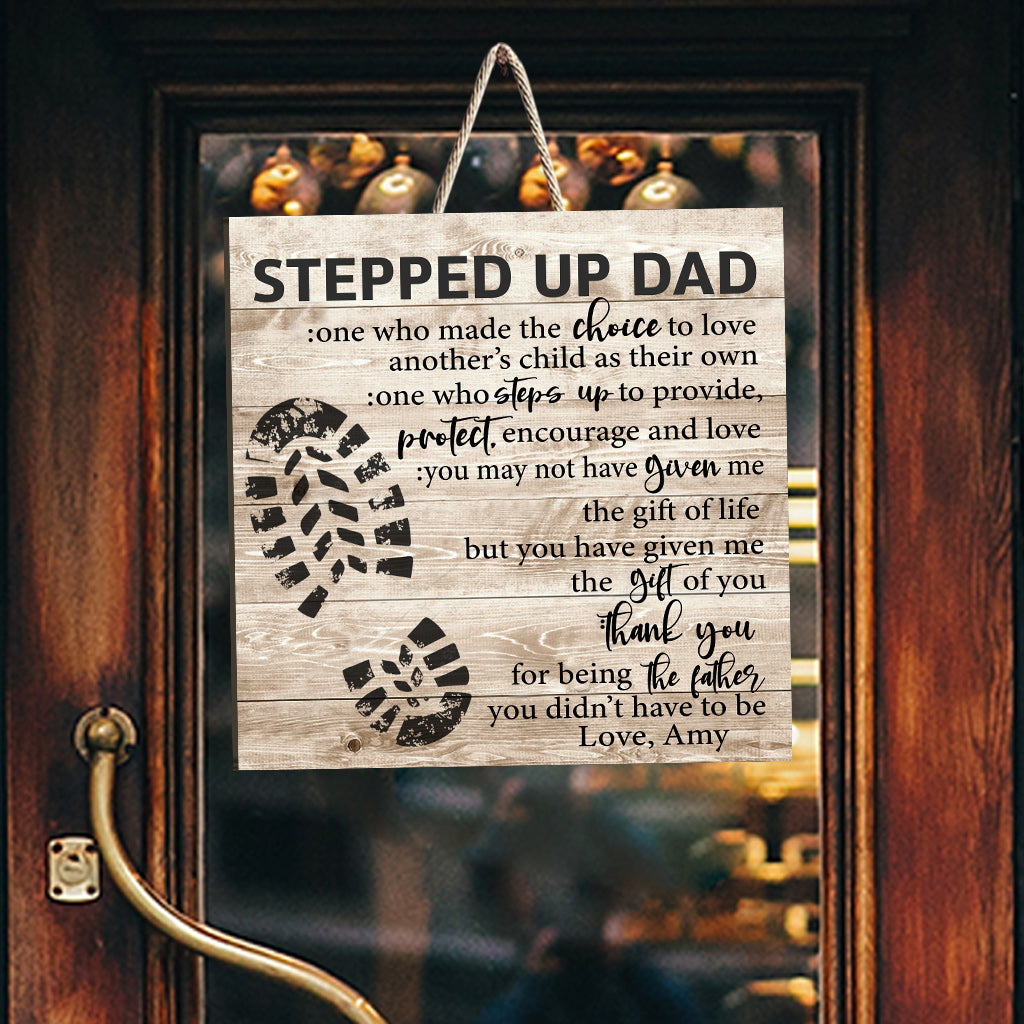 STEPPED UP DAD
:one who made the choice to love
another's child as their own
:one who steps up to provide,
protect, encourage and love
:you may not have given me
the gift of life
but you have given me
the gift of you
:thank you
for being the father
you didn't have to be
Love, Amy